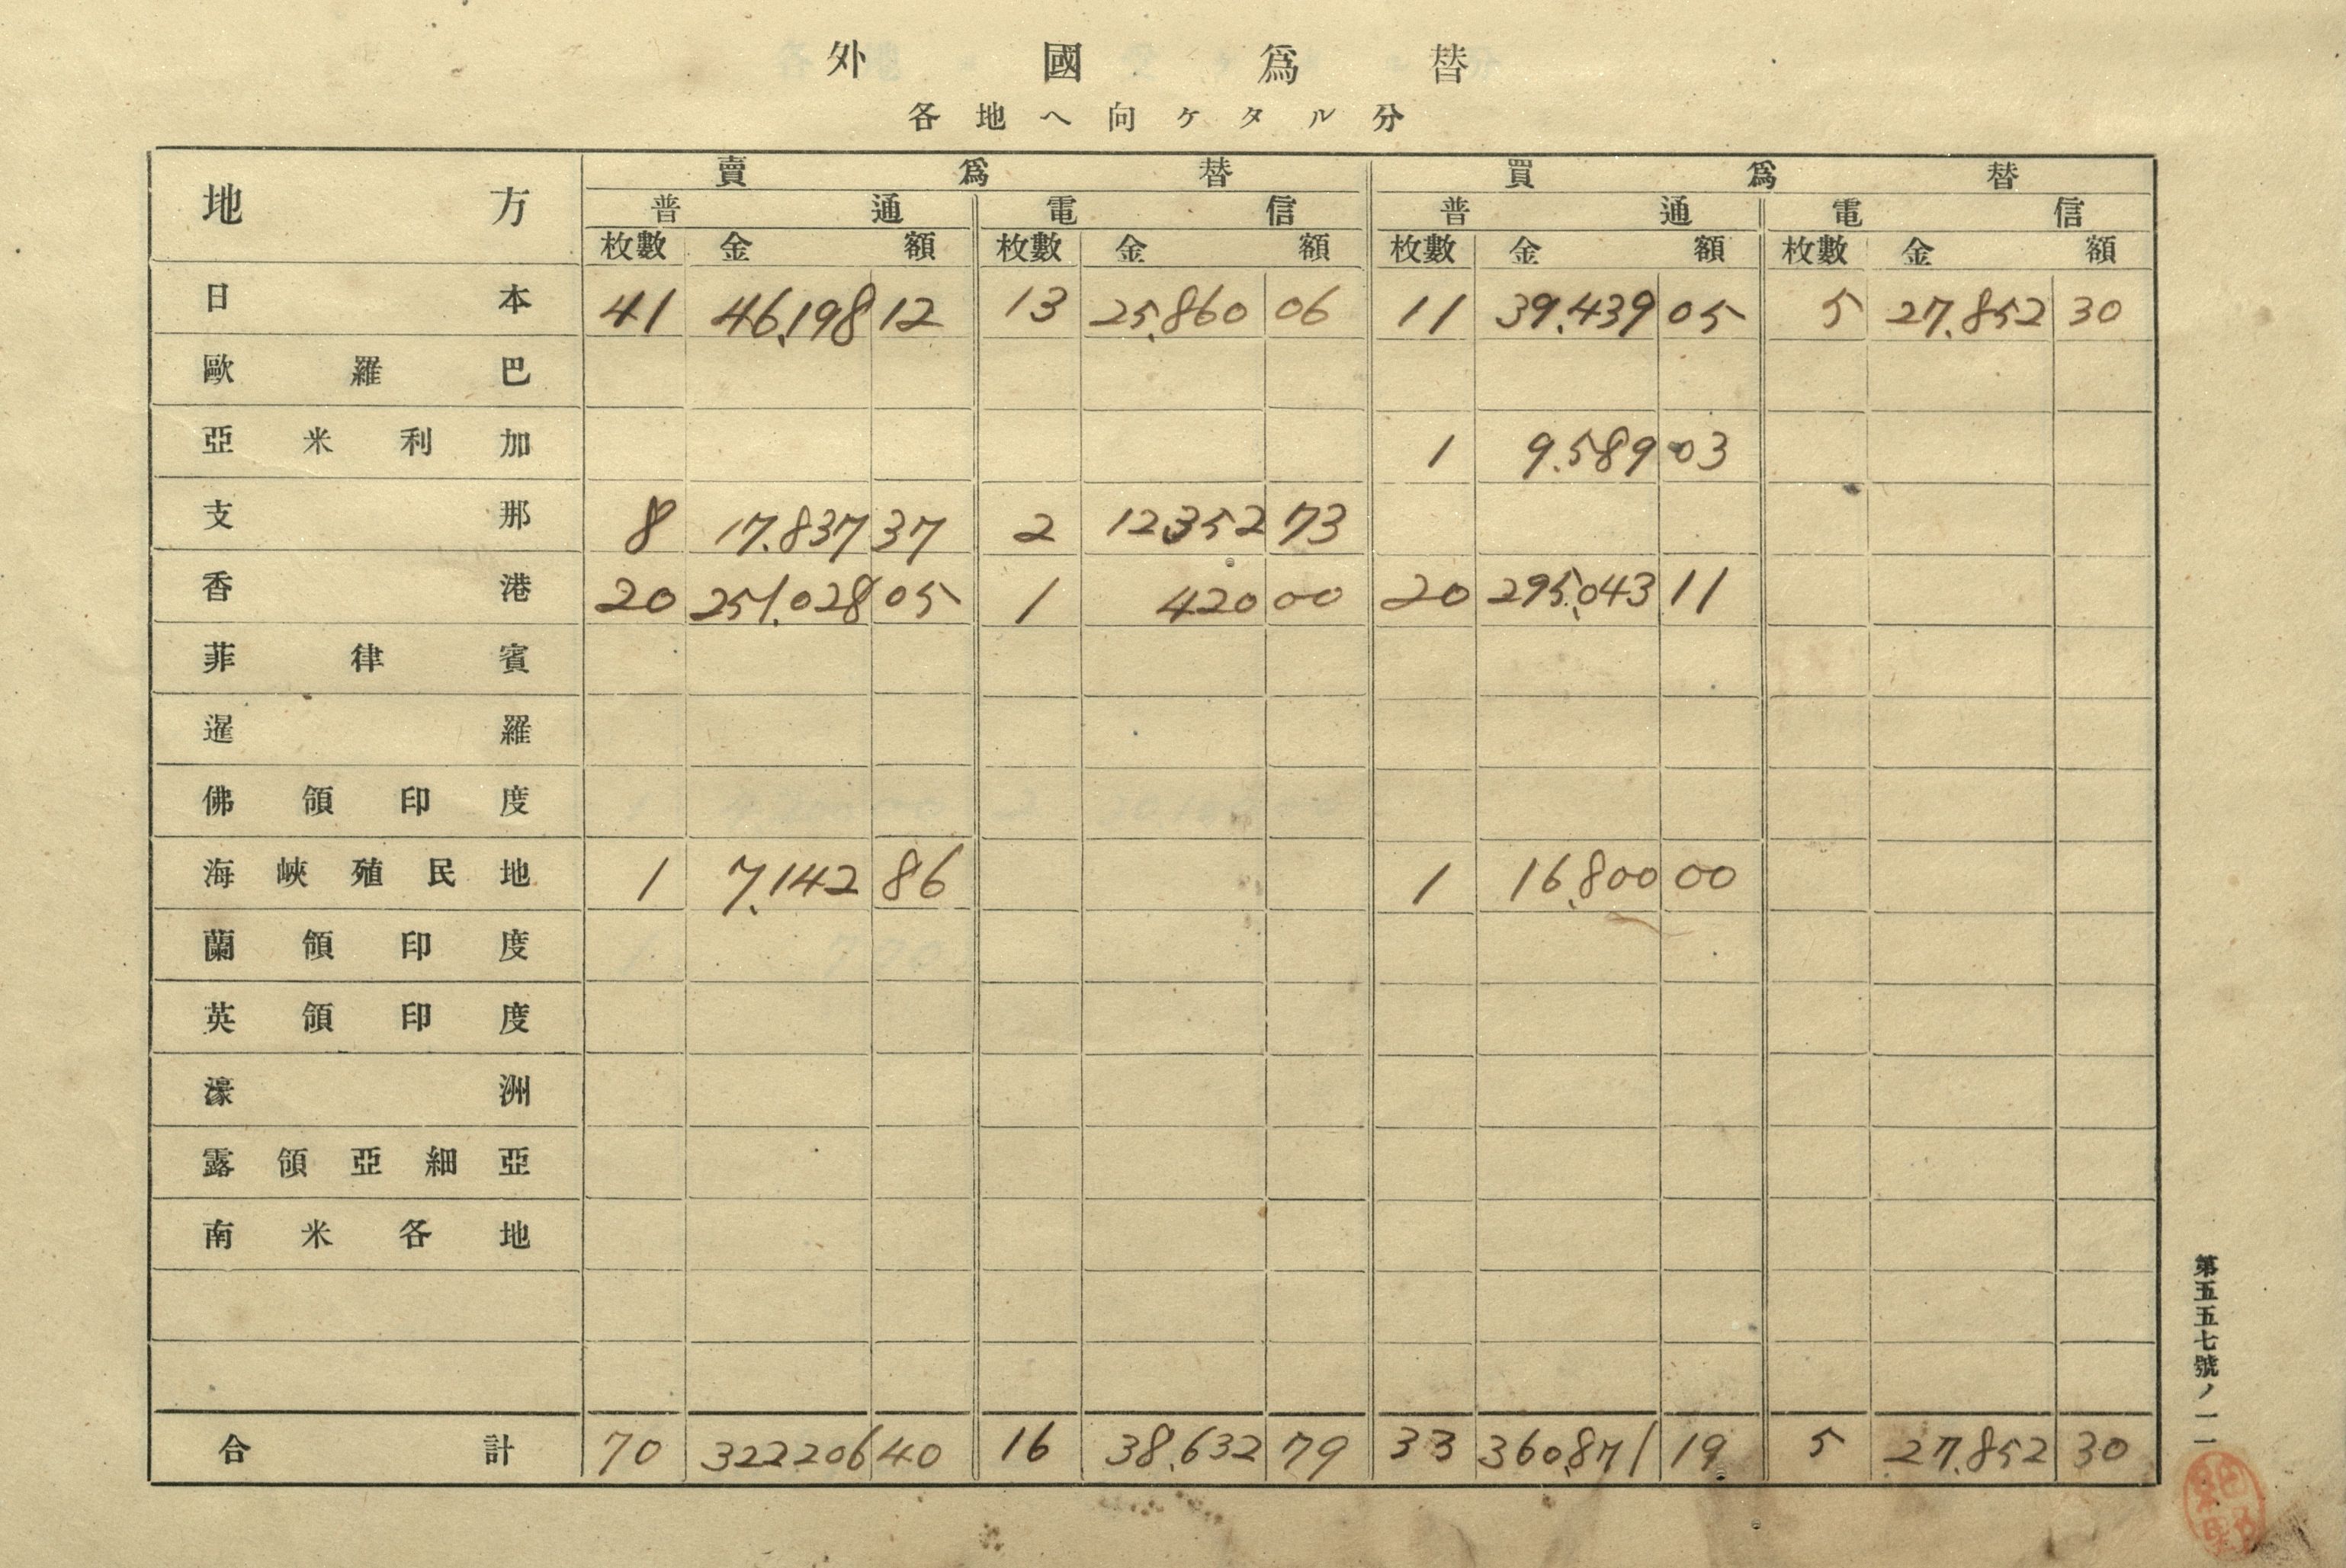 外國爲替
各地へ向ケタル分
地方 賣爲替 買爲替
普通 電信 普通 電信
枚數 金額 枚數 金額 枚數 金額 枚數 金額
日本 41 46,198 12 13 25,860 06 11 39,439 05 5 27,852 30
歐羅巴
亞米利加 1 9,589 03
支那 8 17,837 37 2 12352 73
香港 20 251,028 05 1 420 00 20 295,043 11
菲律賓
暹羅
佛領印度
海峽殖民地 1 7,142 86 1 16,800 00
蘭領印度
英領印度
濠洲
露領亞細亞
南米各地
合計 70 322206 40 16 38,632 79 33 360,871 19 5 27,852 30
第五五七號ノ二